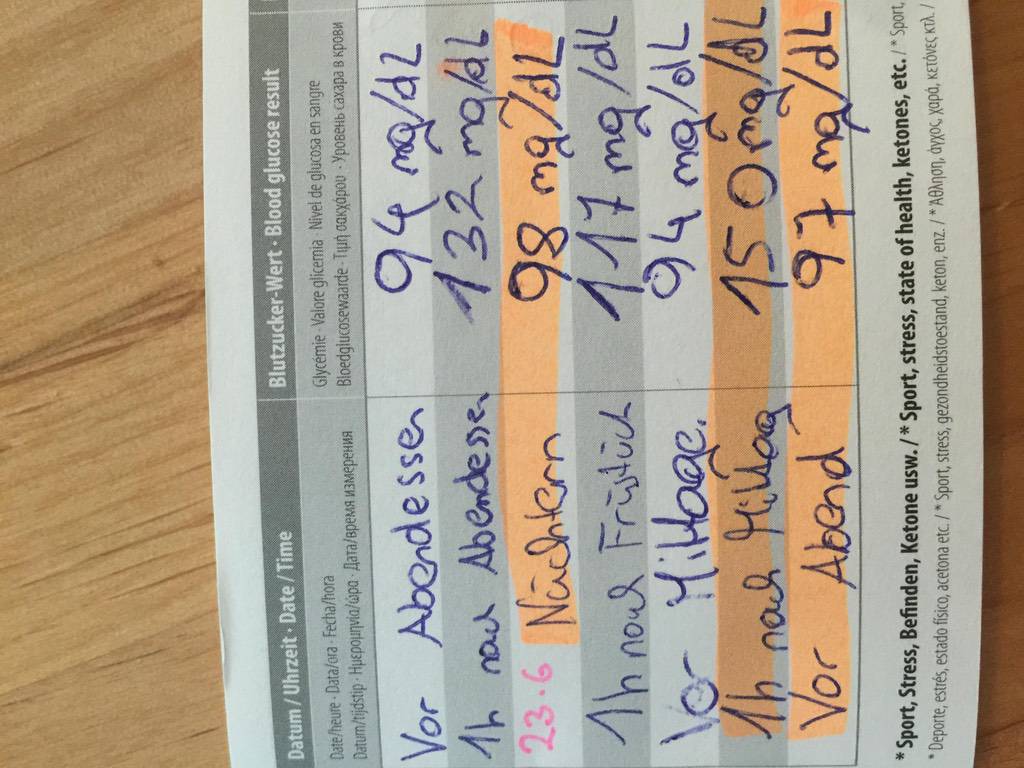 Datum / Uhrzeit · Date / Time Blutzucker-Wert · Blood glucose result
Date/heure · Data/ora · Fecha/hora Glycémie · Valore glicemia · Nivel de glucosa en sangre
Datum/tijdstip · Ημερομηνία/ώρα · Дата/время измерения Bloedglucosewaarde · Τιμή σακχάρου · Уровень сахара в крови
Vor Abendessen 94 mg/dL
1h nach Abendessen 132 mg/dL
23.6 Nüchtern 98 mg/dL
1h nach Früstück 117 mg/dL
Vor Mittage. 94 mg/dL
1h nach Mittag 150 mg/dL
Vor Abend 97 mg/dL
* Sport, Stress, Befinden, Ketone usw. / * Sport, stress, state of health, ketones, etc. / * Sport,
* Deporte, estrés, estado físico, acetona etc. / * Sport, stress, gezondheidstoestand, keton, enz. / * Άθληση, άγχος, χαρά, κετόνες κτλ. /